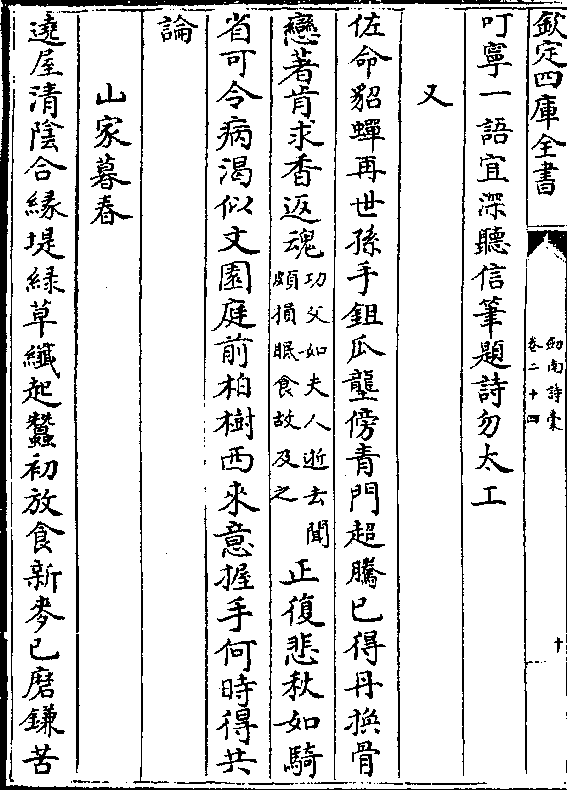 欽定四庫全書
劒南詩稾
卷二十四
十
叮寧一語宜深聽信筆題詩勿太工
又
佐命貂蟬再世孫手鉏瓜壟傍青門超騰已得丹換骨
戀著肯求香返魂功父如夫人逝去聞頗損眠食故及之正復悲秋如騎
省可令病渇似文園庭前柏樹西來意握手何時得共
論
山家暮春
遶屋清陰合縁堤緑草纖起蠶初放食新麥已磨鎌苦